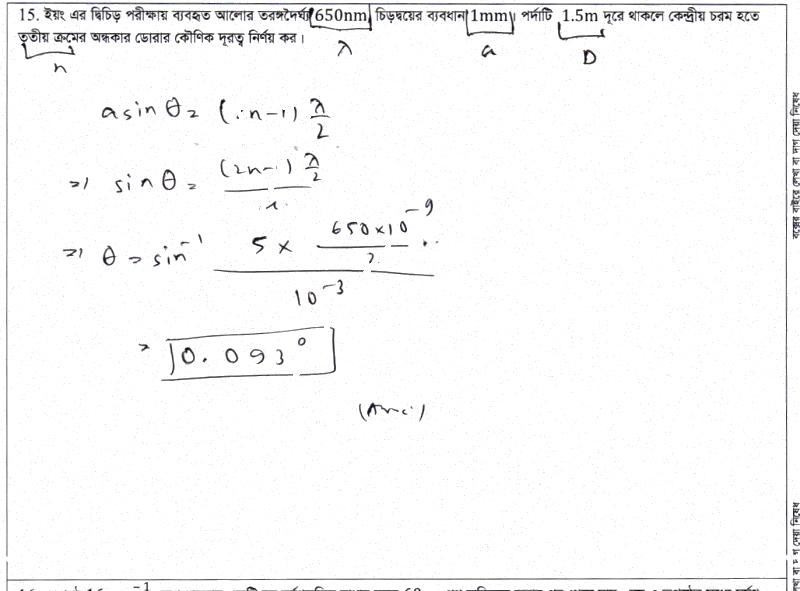 15. ইয়ং এর দ্বিচিড় পরীক্ষায় ব্যবহৃত আলোর তরঙ্গদৈর্ঘ্য 650nm, চিড়দ্বয়ের ব্যবধান 1mm। পর্দাটি 1.5m দূরে থাকলে কেন্দ্রীয় চরম হতে
তৃতীয় ক্রমের অন্ধকার ডোরার কৌণিক দূরত্ব নির্ণয় কর।
n λ a D
a sin θ = (2n-1) λ/2
⇒ sin θ = (2n-1) λ/2
⇒ θ = sin⁻¹ 5 × 650×10⁻⁹/2 / 10⁻³
= 0.093°
(Ans:)
বক্সের বাইরে লেখা বা দাগ দেয়া নিষেধ